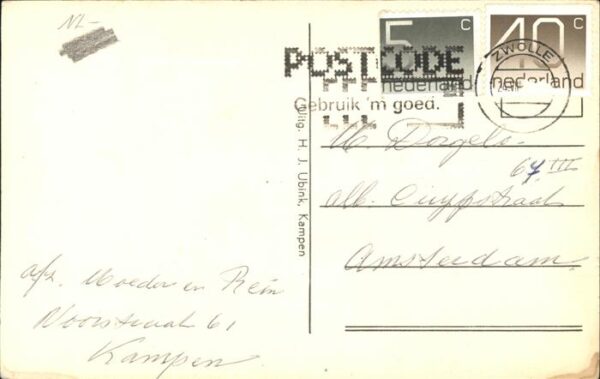 NL-
5 c
nederland
40 c
nederland
POSTCODE
Gebruik 'm goed.
ZWOLLE
Uitg. H. J. Ubink, Kampen
M. Dorgels.
67 III
alb. Cuypstraat
Amsterdam.
afz. Moeder en Rein
Voorstraat 61
Kampen